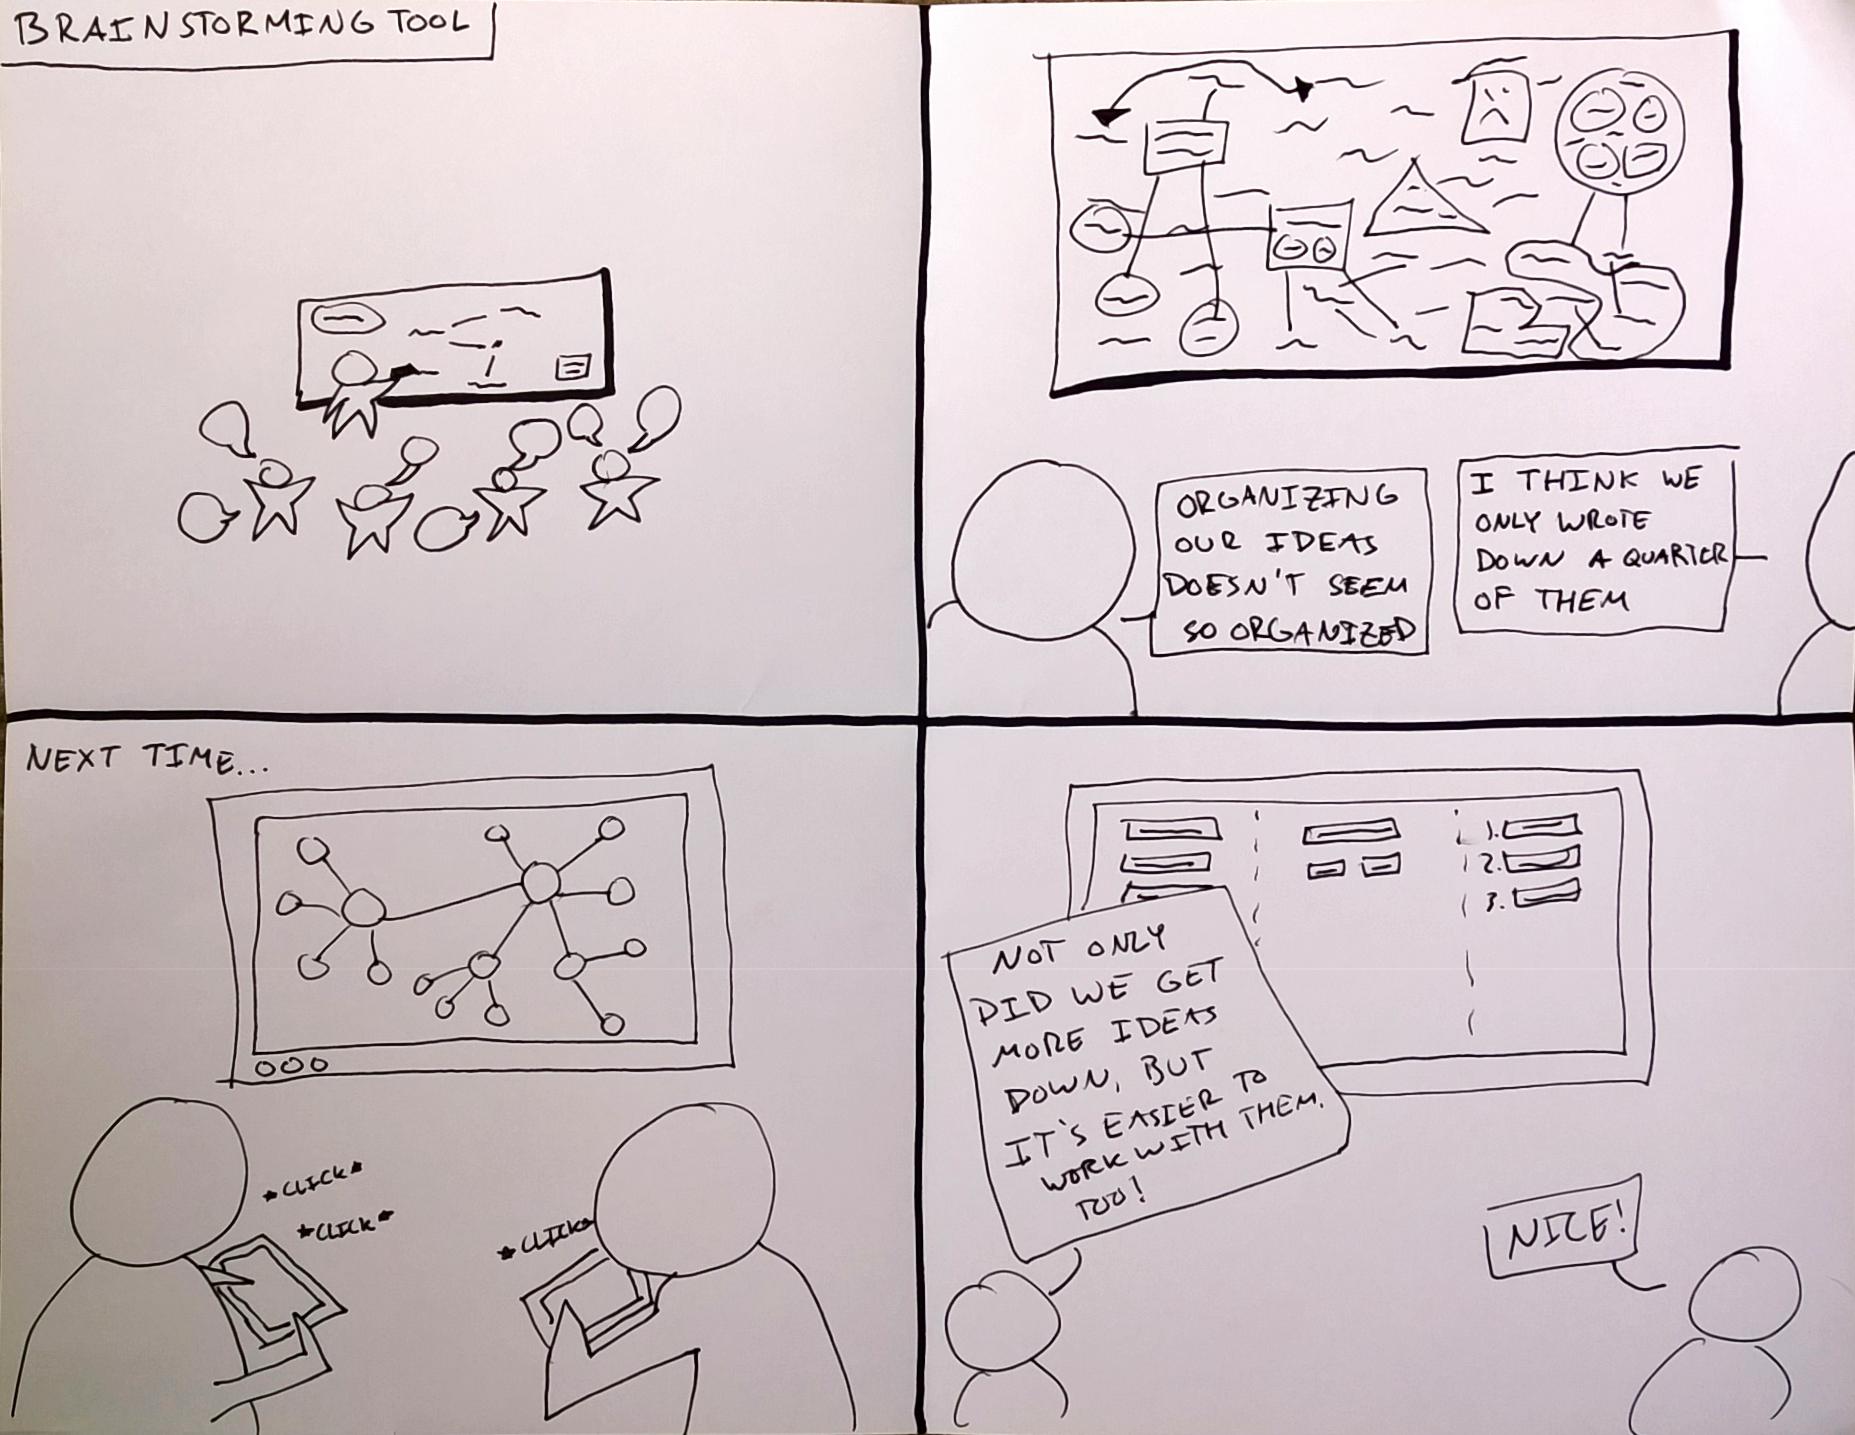 BRAINSTORMING TOOL
ORGANIZING
OUR IDEAS
DOESN'T SEEM
SO ORGANIZED
I THINK WE
ONLY WROTE
DOWN A QUARTER
OF THEM
NEXT TIME...
*CLICK*
*CLICK*
*CLICK*
1.
2.
3.
NOT ONLY
DID WE GET
MORE IDEAS
DOWN, BUT
IT'S EASIER TO
WORK WITH THEM.
TOO!
NICE!